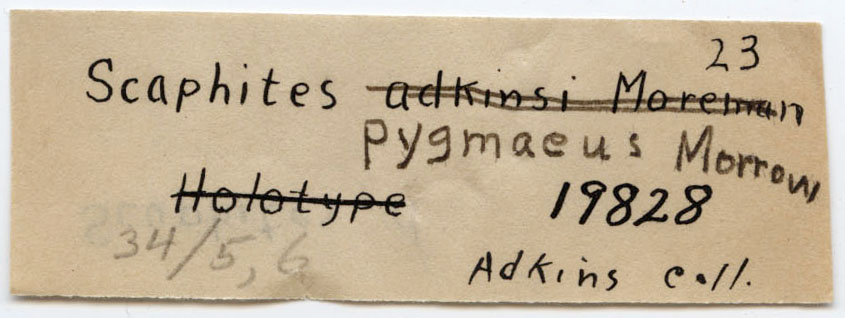 23
Scaphites adkinsi Moreman
pygmaeus Morrow
Holotype 19828
34/5, 6
Adkins coll.